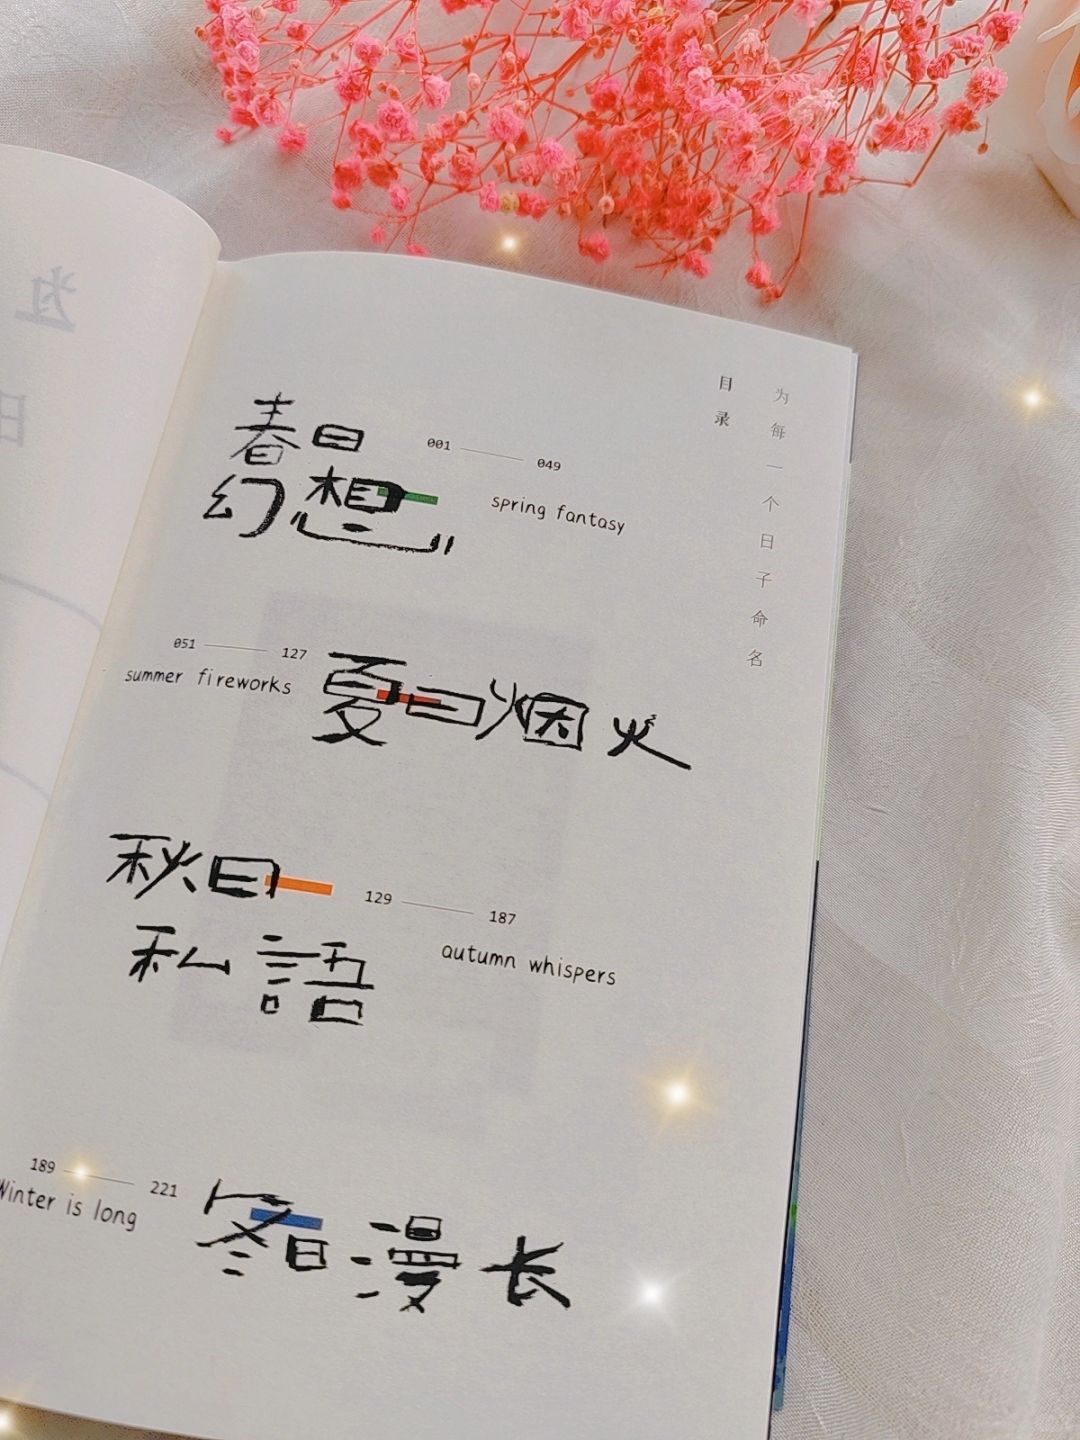 为每一个日子命名
目录
春日
幻想
001 — 049
spring fantasy
051 — 127
summer fireworks
夏日烟火
秋日
私語
129 — 187
autumn whispers
189 — 221
Winter is long
冬日漫长
为
日